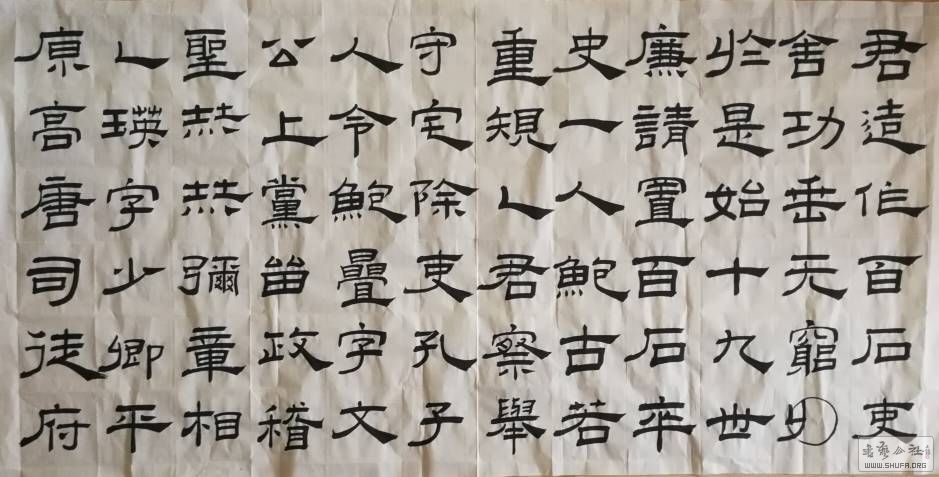 君造作百石吏
舍功垂无窮
於是始十九世
廉請置百石卒
史一人鮑古若
重規乙君察舉
守宅除吏孔子
人令鮑疊字文
公上黨留政稽
聖赫赫彌章相
乙瑛字少卿平
原高唐司徒府
WWW.SHUFA.ORG